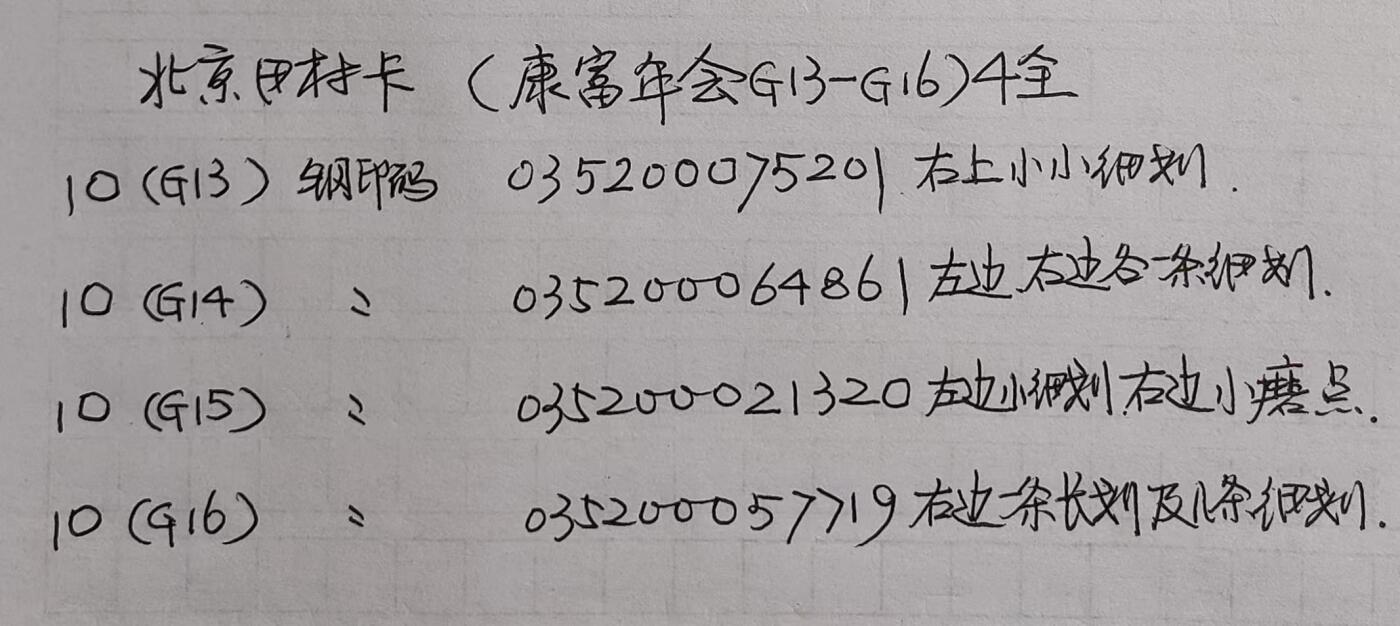 北京田村卡（康富年会G13-G16)4全
10(G13) 钢印码 035200075201 右上小小细划.
10(G14) 〃 035200064861 左边右边各一条细划.
10(G15) 〃 035200021320 左边小细划右边小磨点.
10(G16) 〃 035200057719 右边一条长划及几条细划.